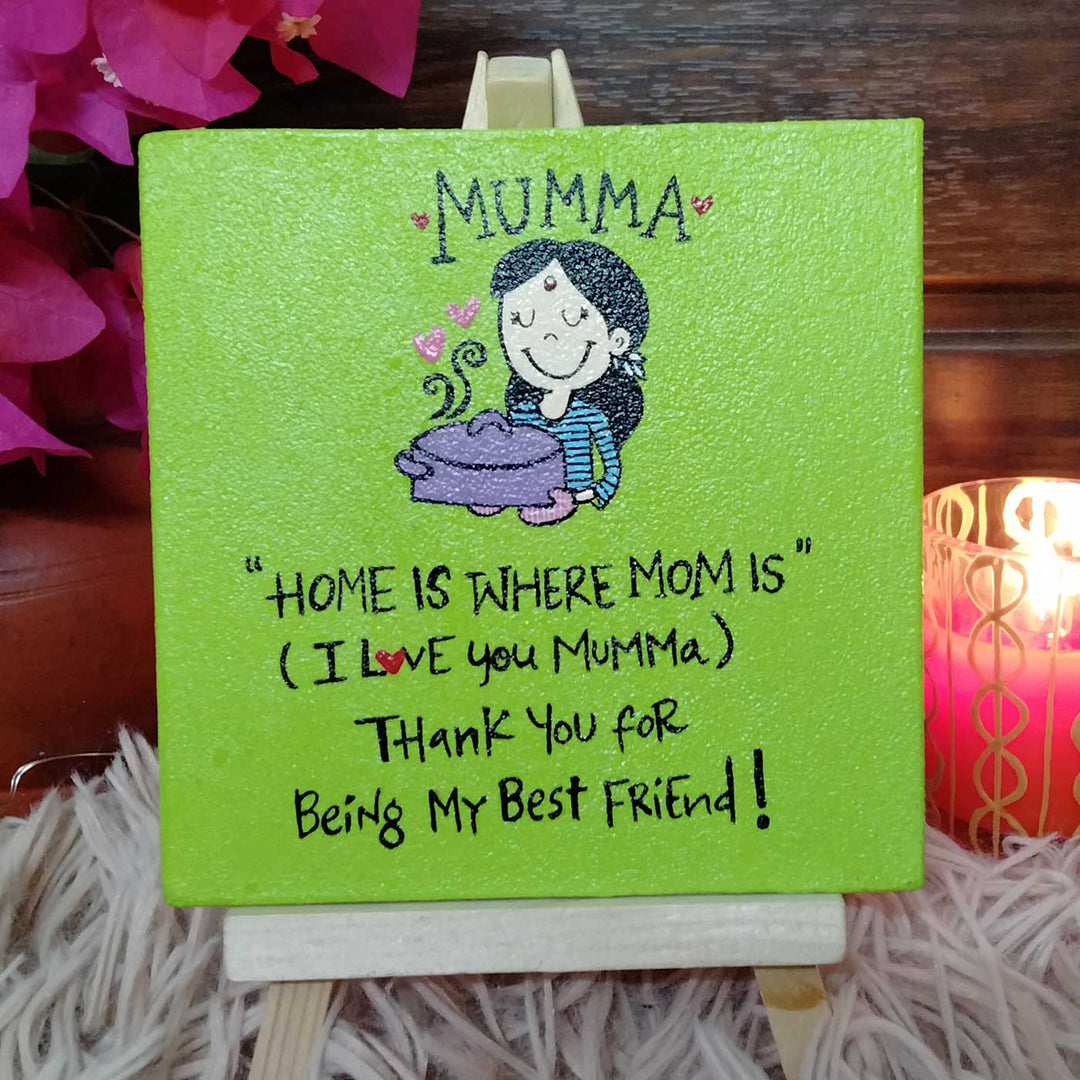 MUMMA
"HOME IS WHERE MOM IS"
(I LOVE you MUMMa)
THanK You foR
BeiNg MY Best FRiEnd!